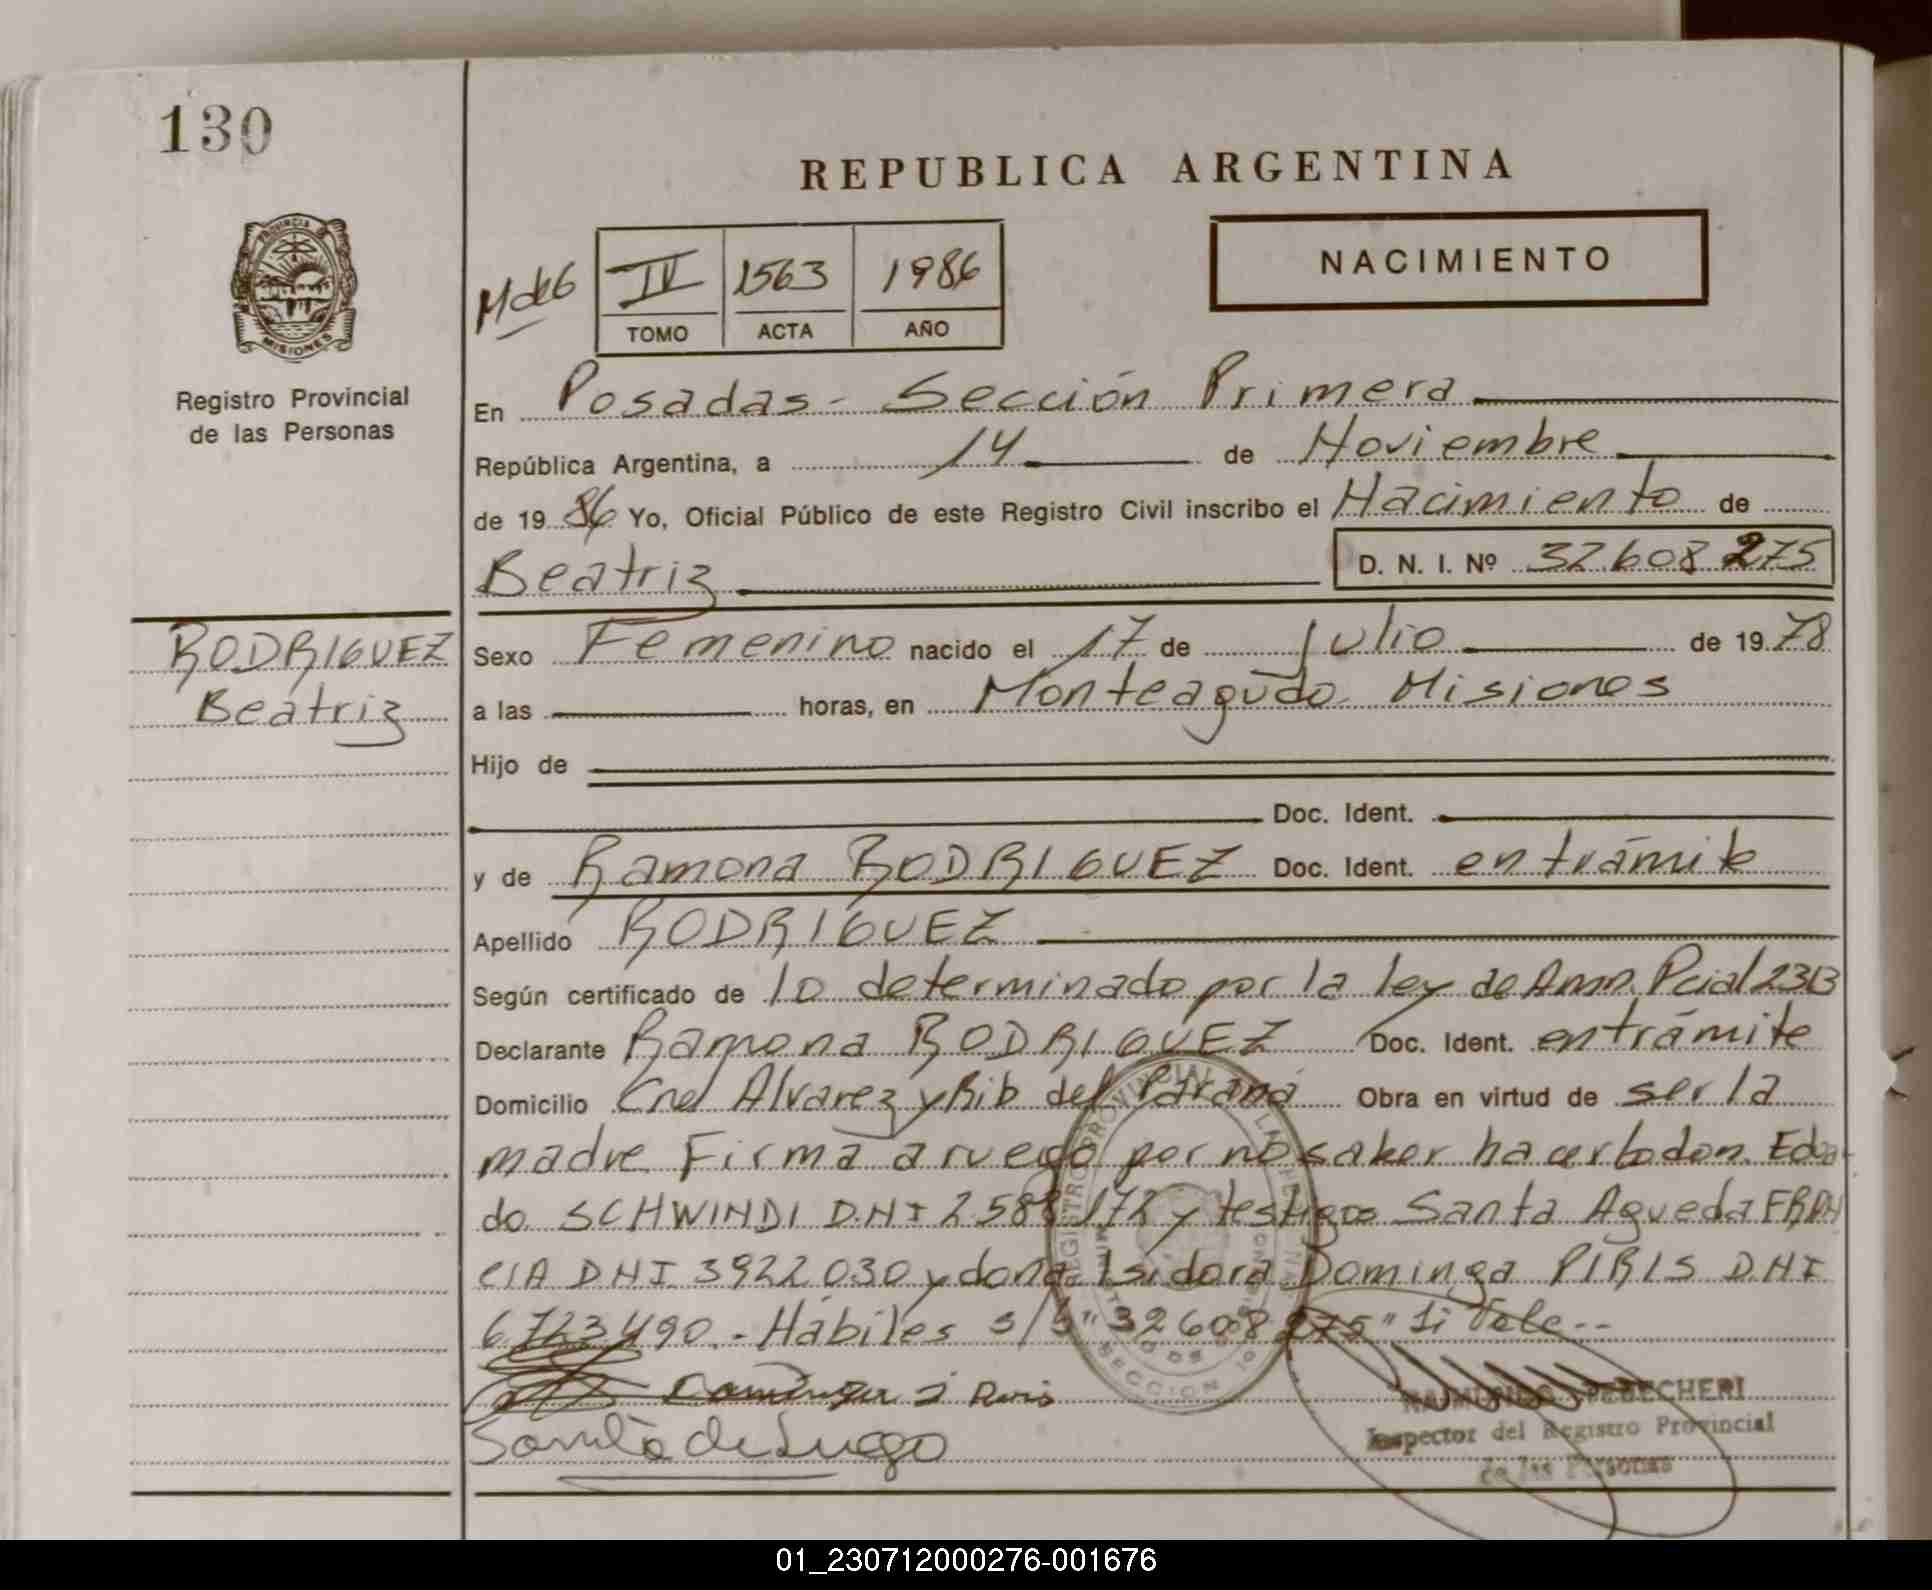 130
REPUBLICA ARGENTINA
NACIMIENTO
IV 1563 1986
TOMO ACTA AÑO
PROVINCIA DE
MISIONES
Registro Provincial
de las Personas
En Posadas - Sección Primera
República Argentina, a 14 de Noviembre
de 19 86 Yo, Oficial Público de este Registro Civil inscribo el Nacimiento de
Beatriz D. N. I. Nº 32.608 275
RODRIGUEZ
Beatriz
Sexo Femenino nacido el 17 de Julio de 19 78
a las horas, en Monteagudo Misiones
Hijo de
Doc. Ident.
y de Ramona RODRIGUEZ Doc. Ident. en trámite
Apellido RODRIGUEZ
Según certificado de lo determinado por la ley de Amn. Pcial 2313
Declarante Ramona RODRIGUEZ Doc. Ident. en trámite
Domicilio Cnel Alvarez y Rib del Paraná Obra en virtud de ser la
madre Firma a ruego por no saber hacerlo don Edua
do SCHWINDI D.N.I 2.588.172 y testigos Santa Agueda FRAN
CIA DNI 3922.030 y doña Isidora Dominga PIRIS DNI
6.723.490. - Hábiles s/b "32608275" Si Vale --
REGISTRO PROVINCIAL DE LAS PERSONAS
SECCION 1º
Inspector del Registro Provincial
de las Personas
01_230712000276-001676